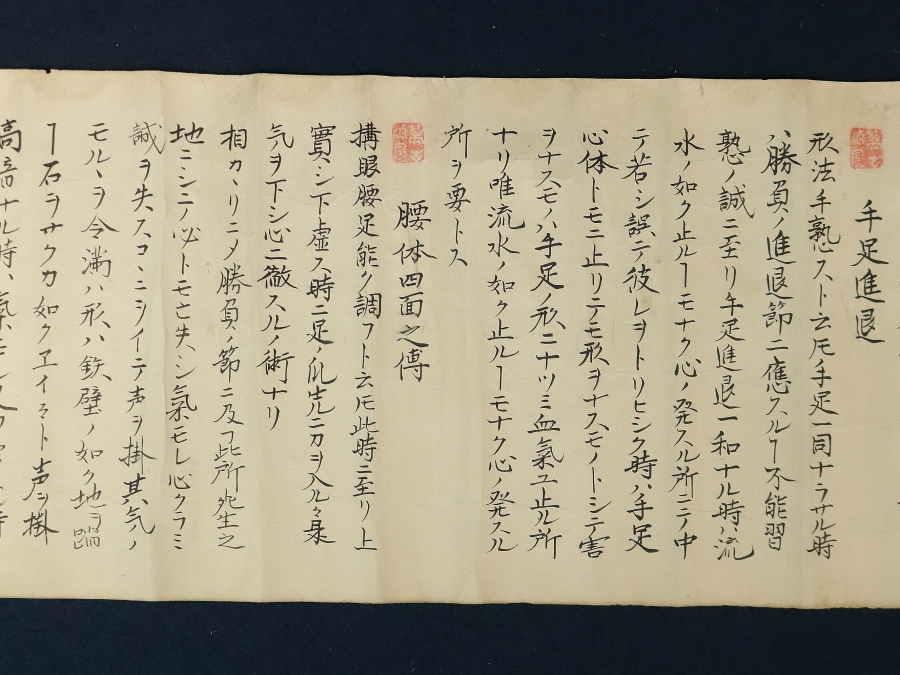 手足進退
形法手熟スト云𪜈手足一同ナラサル時
ハ勝負ノ進退節ニ應スルヿ不能習
熟ノ誠ニ至リ手足進退一和ナル時ハ流
水ノ如ク止ルヿモナク心ノ発スル所ニテ中
テ若シ誤テ彼レヲトリヒシク時ハ手足
心体トモニ止リテモ形ヲナスモノトシテ害
ヲナスモノハ手足ノ形ニナツミ血氣ユ止ル所
ナリ唯流水ノ如ク止ルヿモナク心ノ発スル
所ヲ要トス
腰体四面之傳
搆眼腰足能ク調フト云𪜈此時ニ至リ上
實シ下虚ス時ニ足ノ爪先ニ力ヲ入ル
気ヲ下シ心ニ徹スルノ術ナリ
相カヽリニ〆勝負ノ節ニ及フ此所死生之
地ニシテ必トモ亡失シ氣モレ心クラミ
誠ヲ失スコヽニシイテ声ヲ掛其気ノ
モルヽヲ今満ハ形ハ鉄壁ノ如ク地ヲ踏
ヿ石ヲサクカ如クヱイ〻ト声ヲ掛
高音ナル時ハ氣モレ